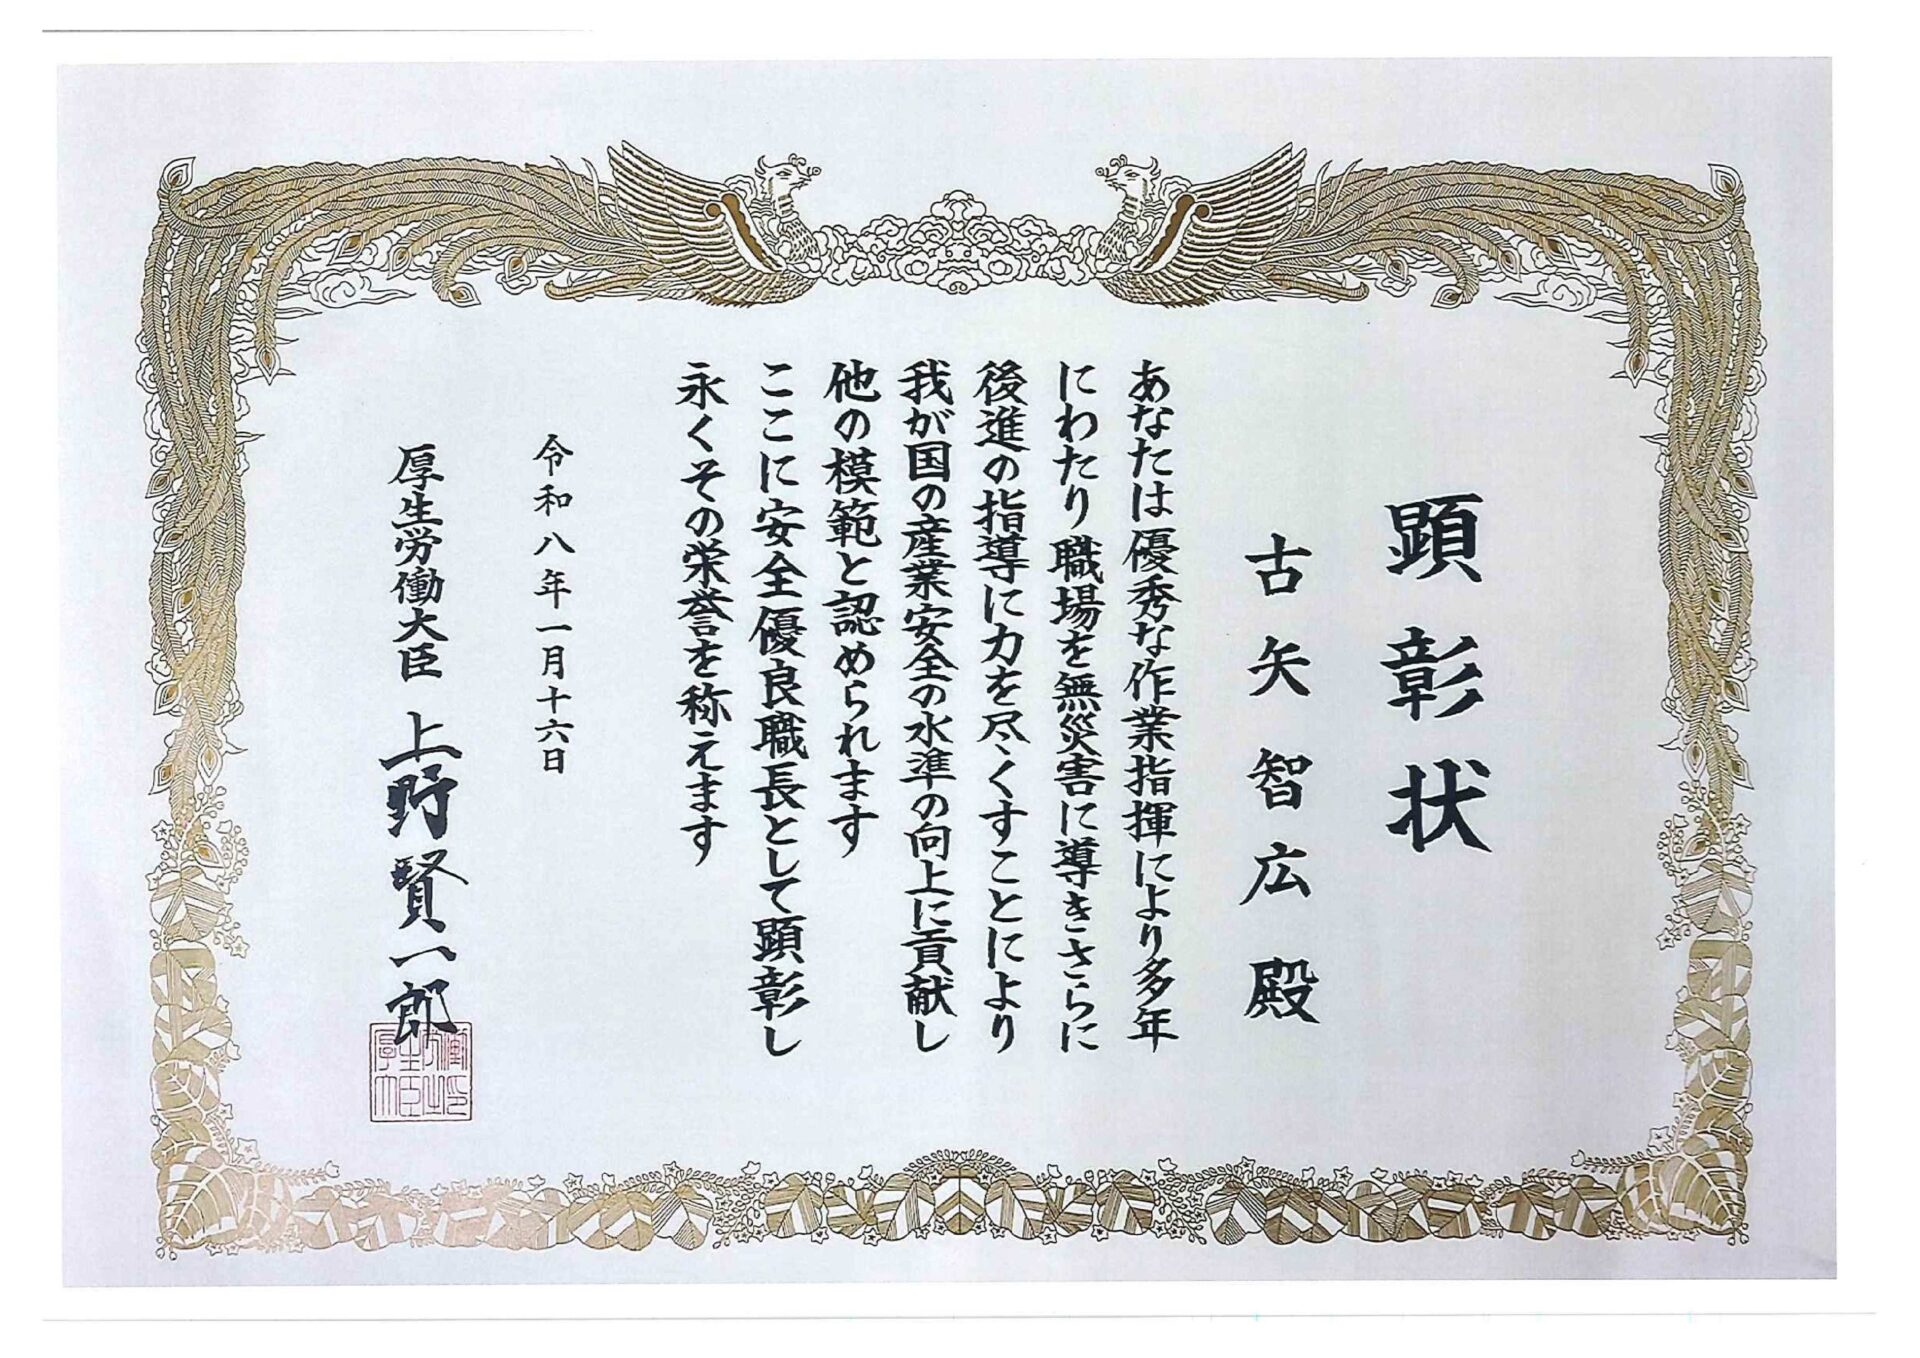 顕彰状
古矢智広殿
あなたは優秀な作業指揮により多年
にわたり職場を無災害に導きさらに
後進の指導に力を尽くすことにより
我が国の産業安全の水準の向上に貢献し
他の模範と認められます
ここに安全優良職長として顕彰し
永くその栄誉を称えます
令和八年一月十六日
厚生労働大臣 上野賢一郎